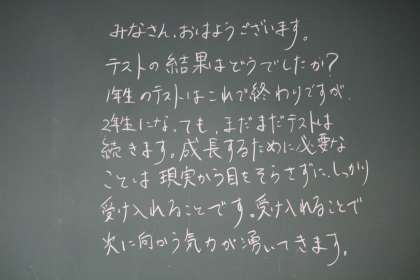 みなさん、おはようございます。
テストの結果はどうでしたか?
1年生のテストはこれで終わりですが、
2年生になっても、まだまだテストは
続きます。成長するために必要な
ことは現実から目をそらさずに、しっかり
受け入れることです。受け入れることで
次に向かう気力が湧いてきます。